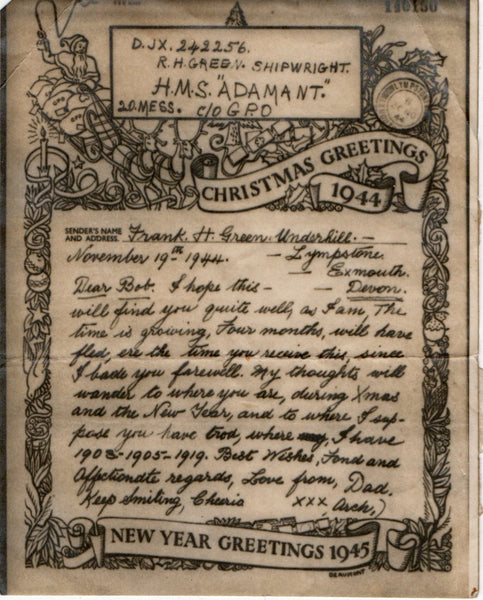 116150
D.JX. 242256.
R.H. GREEN. SHIPWRIGHT.
H.M.S. "ADAMANT."
20.MESS. c/o G.P.O
CHRISTMAS GREETINGS
1944
SENDER'S NAME
AND ADDRESS. Frank. H. Green. Underhill. —
November 19th 1944. — Lympstone.
Exmouth.
Dear Bob. I hope this — — Devon.
will find you quite well, as I am, The
time is growing, Four months, will have
fled, ere the time you receive this, since
I bade you farewell. My thoughts will
wander to where you are, during Xmas
and the New Year, and to where I sup-
pose you have trod, where I have
1903-1905-1919. Best Wishes, Fond and
Affectionate regards, Love from, Dad.
Keep Smiling, Cheerio xxx Arch,)
NEW YEAR GREETINGS 1945
BEAUMONT